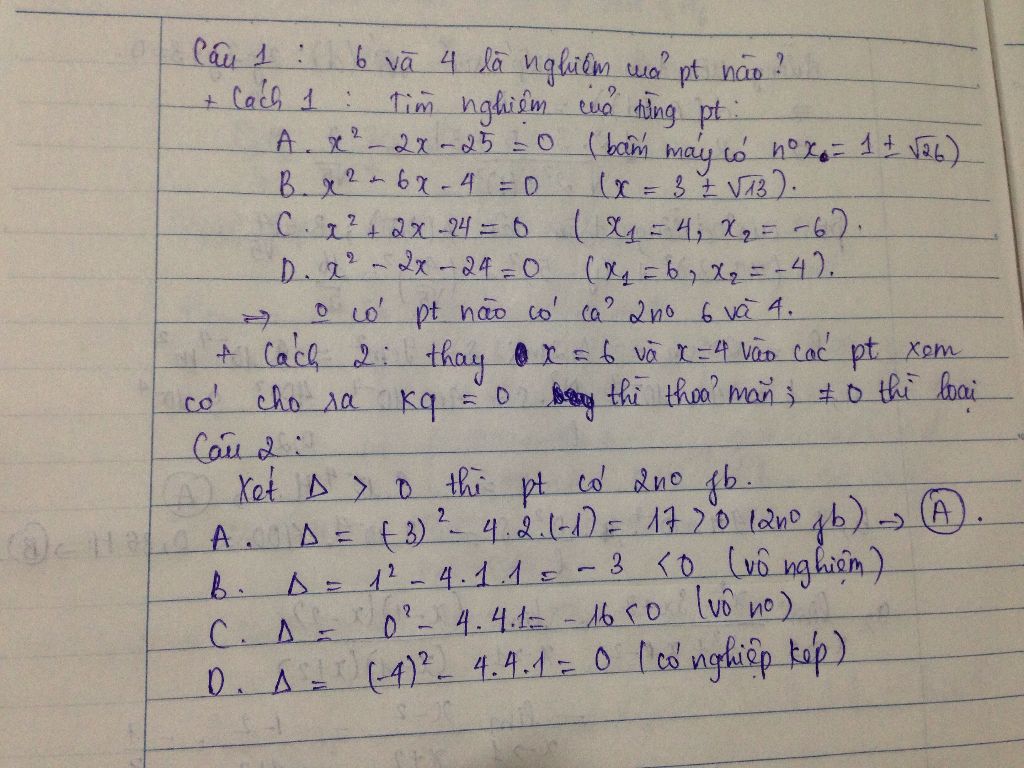 Câu 1 : 6 và 4 là nghiệm của pt nào?
+ Cách 1 : Tìm nghiệm của từng pt:
A. x² - 2x - 25 = 0 (bấm máy có nº x = 1 ± √26)
B. x² - 6x - 4 = 0 (x = 3 ± √13).
C. x² + 2x - 24 = 0 ( x₁ = 4; x₂ = -6).
D. x² - 2x - 24 = 0 (x₁ = 6, x₂ = -4).
⇒ 0 có pt nào có cả 2no 6 và 4.
+ Cách 2: thay x = 6 và x = 4 vào các pt xem
có cho ra kq = 0 thì thoả mãn; ≠ 0 thì loại
Câu 2:
Xét Δ > 0 thì pt có 2no pb.
A. Δ = (-3)² - 4.2.(-1) = 17 > 0 (2no pb) → Ⓐ.
B. Δ = 1² - 4.1.1 = -3 < 0 (vô nghiệm)
C. Δ = 0² - 4.4.1 = -16 < 0 (vô no)
D. Δ = (-4)² - 4.4.1 = 0 (có nghiệp kép)